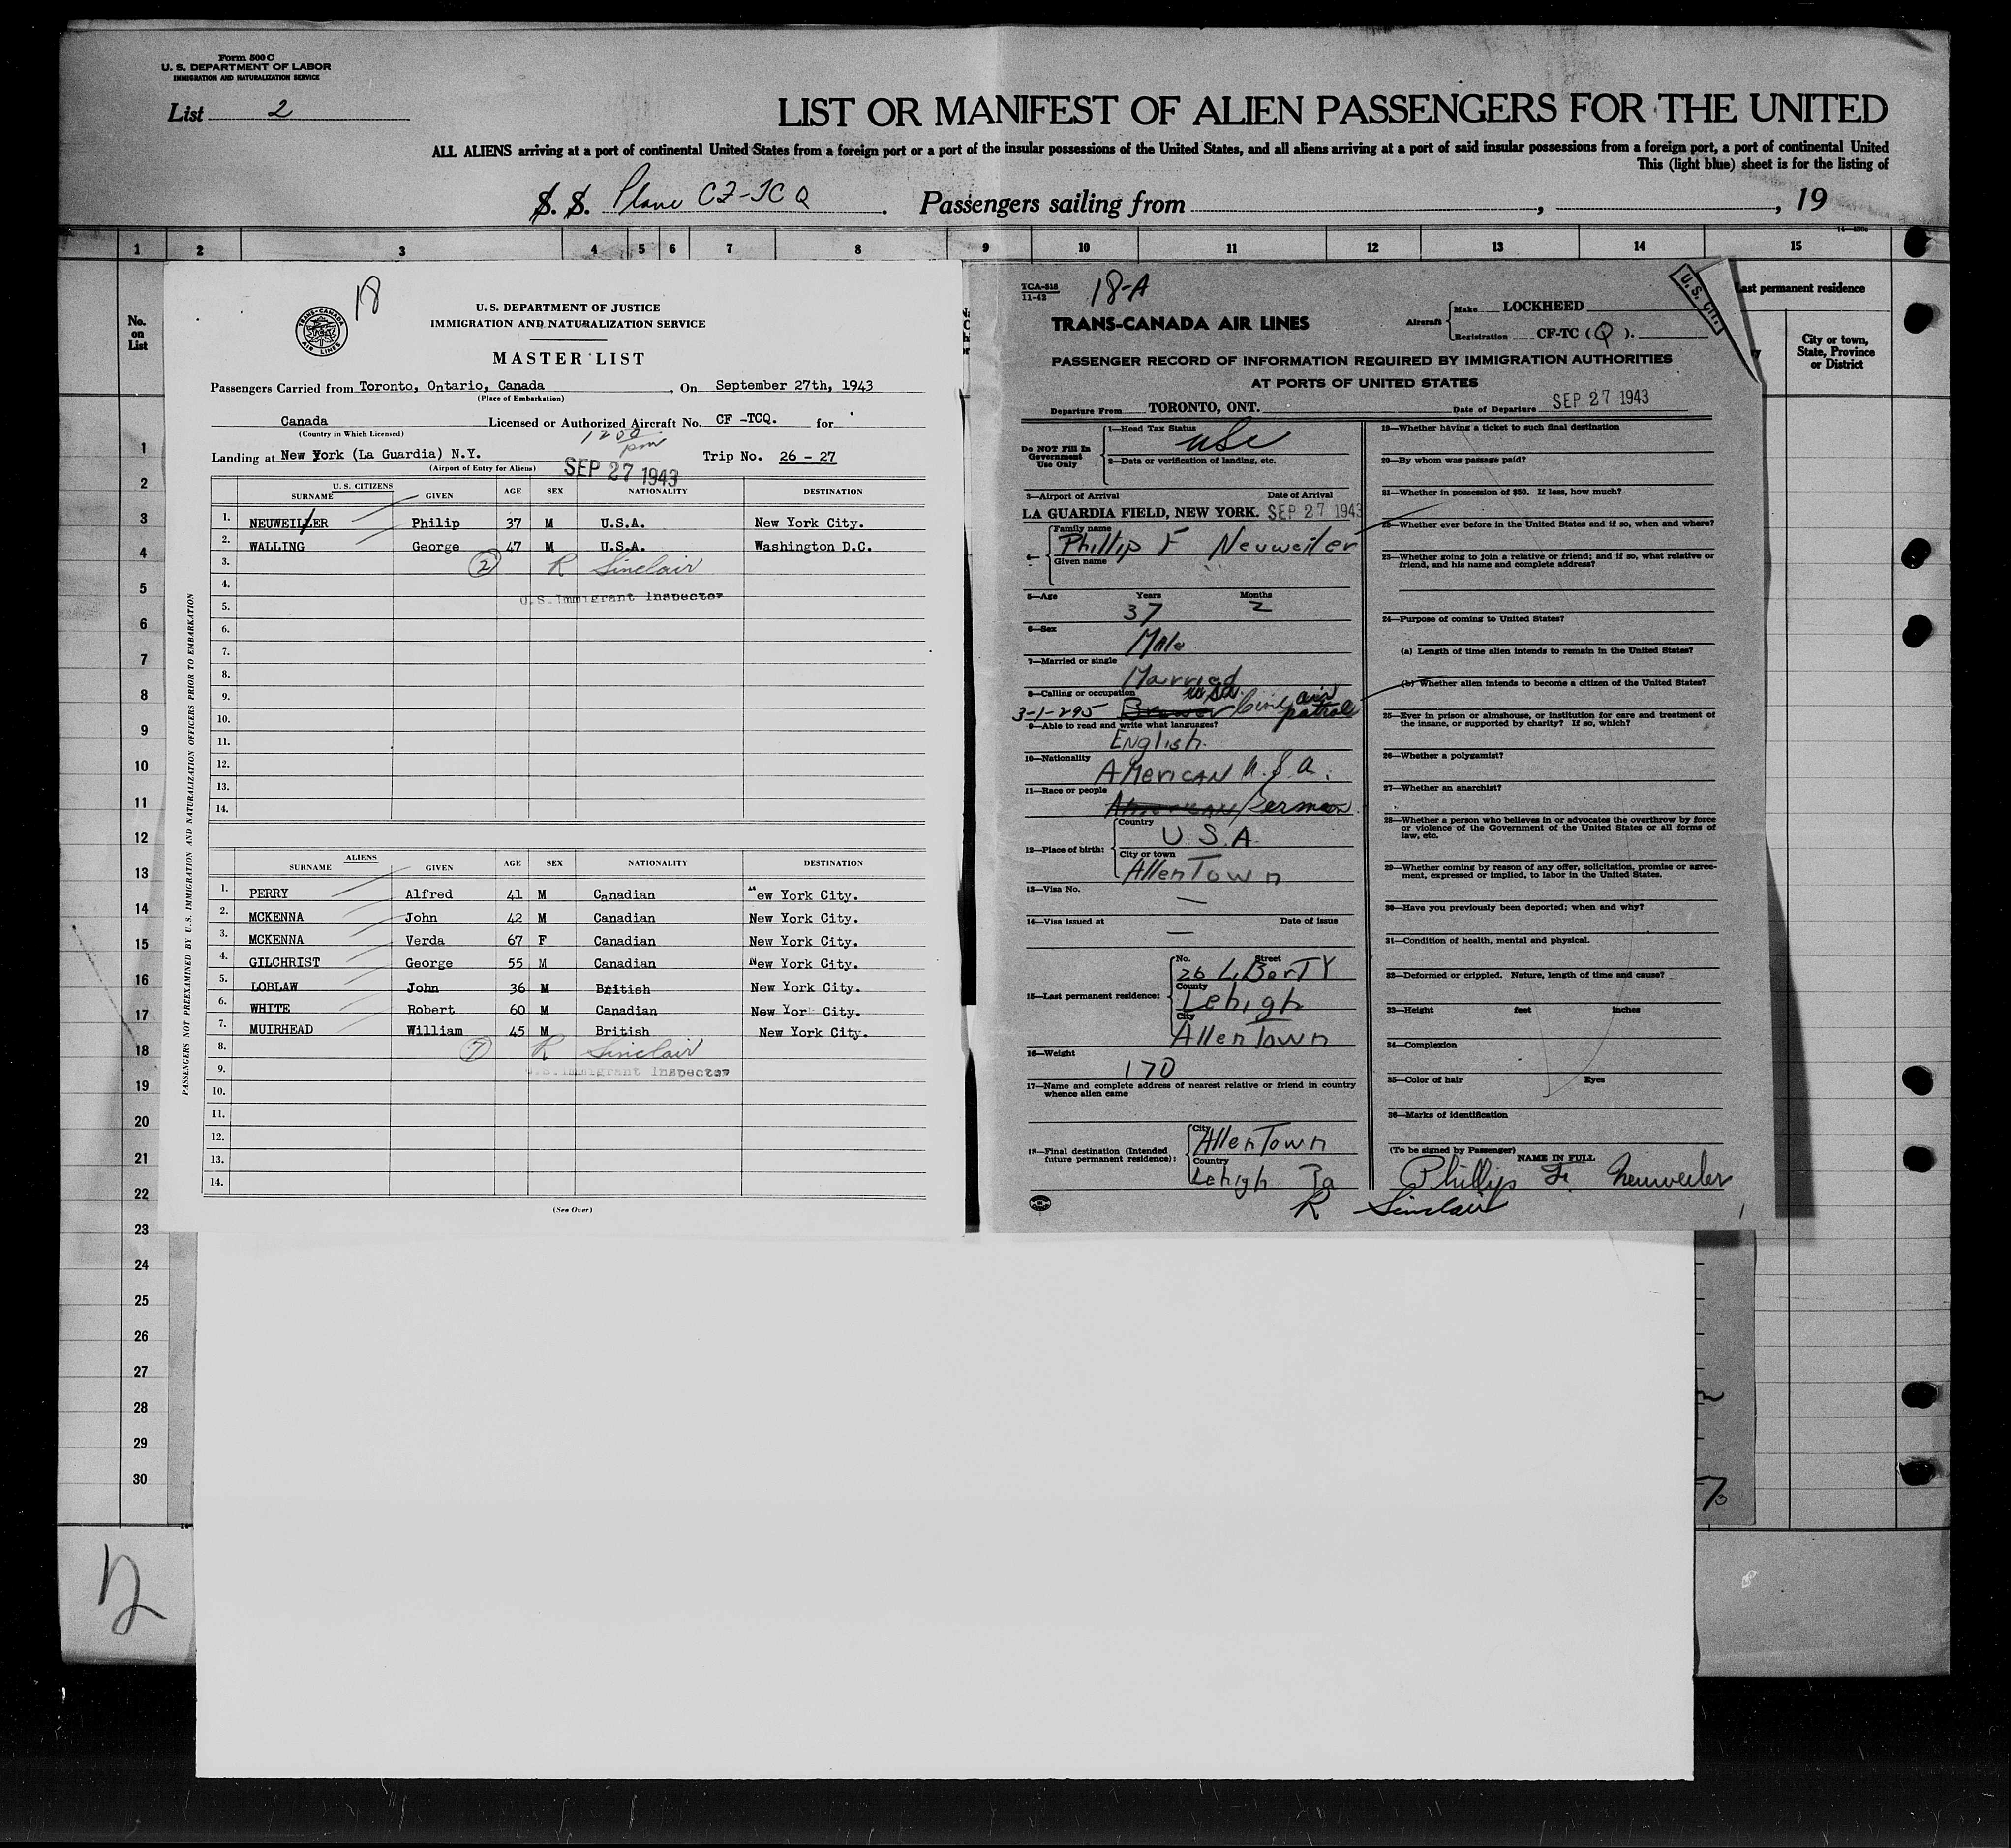 Form 500 C
U. S. DEPARTMENT OF LABOR
IMMIGRATION AND NATURALIZATION SERVICE
List 2
LIST OR MANIFEST OF ALIEN PASSENGERS FOR THE UNITED
ALL ALIENS arriving at a port of continental United States from a foreign port or a port of the insular possessions of the United States, and all aliens arriving at a port of said insular possessions from a foreign port, a port of continental United
This (light blue) sheet is for the listing of
S. S. Plane CF-TCQ. Passengers sailing from , , 19
1 2 3 4 5 6 7 8 9 10 11 12 13 14 15
No. on List
1
2
3
4
5
6
7
8
9
10
11
12
13
14
15
16
17
18
19
20
21
22
23
24
25
26
27
28
29
30
18
TRANS-CANADA AIR LINES
U.S. DEPARTMENT OF JUSTICE
IMMIGRATION AND NATURALIZATION SERVICE
MASTER LIST
Passengers Carried from Toronto, Ontario, Canada, On September 27th, 1943
(Place of Embarkation)
Canada Licensed or Authorized Aircraft No. CF -TCQ. for
(Country in Which Licensed)
1200 pm
Landing at New York (La Guardia) N.Y. Trip No. 26 - 27
(Airport of Entry for Aliens) SEP 27 1943
U. S. CITIZENS
SURNAME GIVEN AGE SEX NATIONALITY DESTINATION
1. NEUWEILLER Philip 37 M U.S.A. New York City.
2. WALLING George 47 M U.S.A. Washington D.C.
3. 2 R Sinclair
4.
5. U.S. Immigrant Inspector
6.
7.
8.
9.
10.
11.
12.
13.
14.
ALIENS
SURNAME GIVEN AGE SEX NATIONALITY DESTINATION
1. PERRY Alfred 41 M Canadian New York City.
2. MCKENNA John 42 M Canadian New York City.
3. MCKENNA Verda 67 F Canadian New York City.
4. GILCHRIST George 55 M Canadian New York City.
5. LOBLAW John 36 M British New York City.
6. WHITE Robert 60 M Canadian New Yor City.
7. MUIRHEAD William 45 M British New York City.
8. 7 R Sinclair
9. U.S. Immigrant Inspector
10.
11.
12.
13.
14.
(See Over)
PASSENGERS NOT PREEXAMINED BY U. S. IMMIGRATION AND NATURALIZATION OFFICERS PRIOR TO EMBARKATION
TCA-518
11-42
18-A
TRANS-CANADA AIR LINES
Aircraft Make LOCKHEED
Registration CF-TC (Q).
U. S. Cit.
PASSENGER RECORD OF INFORMATION REQUIRED BY IMMIGRATION AUTHORITIES
AT PORTS OF UNITED STATES
Departure From TORONTO, ONT. Date of Departure SEP 27 1943
Do NOT Fill In Government Use Only
1—Head Tax Status USC
2—Data or verification of landing, etc.
3—Airport of Arrival Date of Arrival
LA GUARDIA FIELD, NEW YORK. SEP 27 1943
4— Family name
Phillip F Neuweiler
Given name
5—Age Years 37 Months 2
6—Sex Male
7—Married or single Married
8—Calling or occupation
3-1-295 Brewer Civil air patrol
9—Able to read and write what languages?
English.
10—Nationality AMERICAN U.S.A.
11—Race or people German
12—Place of birth: Country U.S.A.
City or town AllenTown
13—Visa No. —
14—Visa issued at — Date of issue
15—Last permanent residence: No. Street
26 LiBerTY
County Lehigh
City AllenTown
16—Weight 170
17—Name and complete address of nearest relative or friend in country whence alien came
18—Final destination (Intended future permanent residence): City AllenTown
Country Lehigh Pa
19—Whether having a ticket to such final destination
20—By whom was passage paid?
21—Whether in possession of $50. If less, how much?
22—Whether ever before in the United States and if so, when and where?
23—Whether going to join a relative or friend; and if so, what relative or friend, and his name and complete address?
24—Purpose of coming to United States?
(a) Length of time alien intends to remain in the United States?
(b) Whether alien intends to become a citizen of the United States?
25—Ever in prison or almshouse, or institution for care and treatment of the insane, or supported by charity? If so, which?
26—Whether a polygamist?
27—Whether an anarchist?
28—Whether a person who believes in or advocates the overthrow by force or violence of the Government of the United States or all forms of law, etc.
29—Whether coming by reason of any offer, solicitation, promise or agreement, expressed or implied, to labor in the United States.
30—Have you previously been deported; when and why?
31—Condition of health, mental and physical.
32—Deformed or crippled. Nature, length of time and cause?
33—Height feet inches
34—Complexion
35—Color of hair Eyes
36—Marks of identification
(To be signed by Passenger) NAME IN FULL
Phillip F. Neuweiler
R Sinclair
Last permanent residence
City or town, State, Province or District